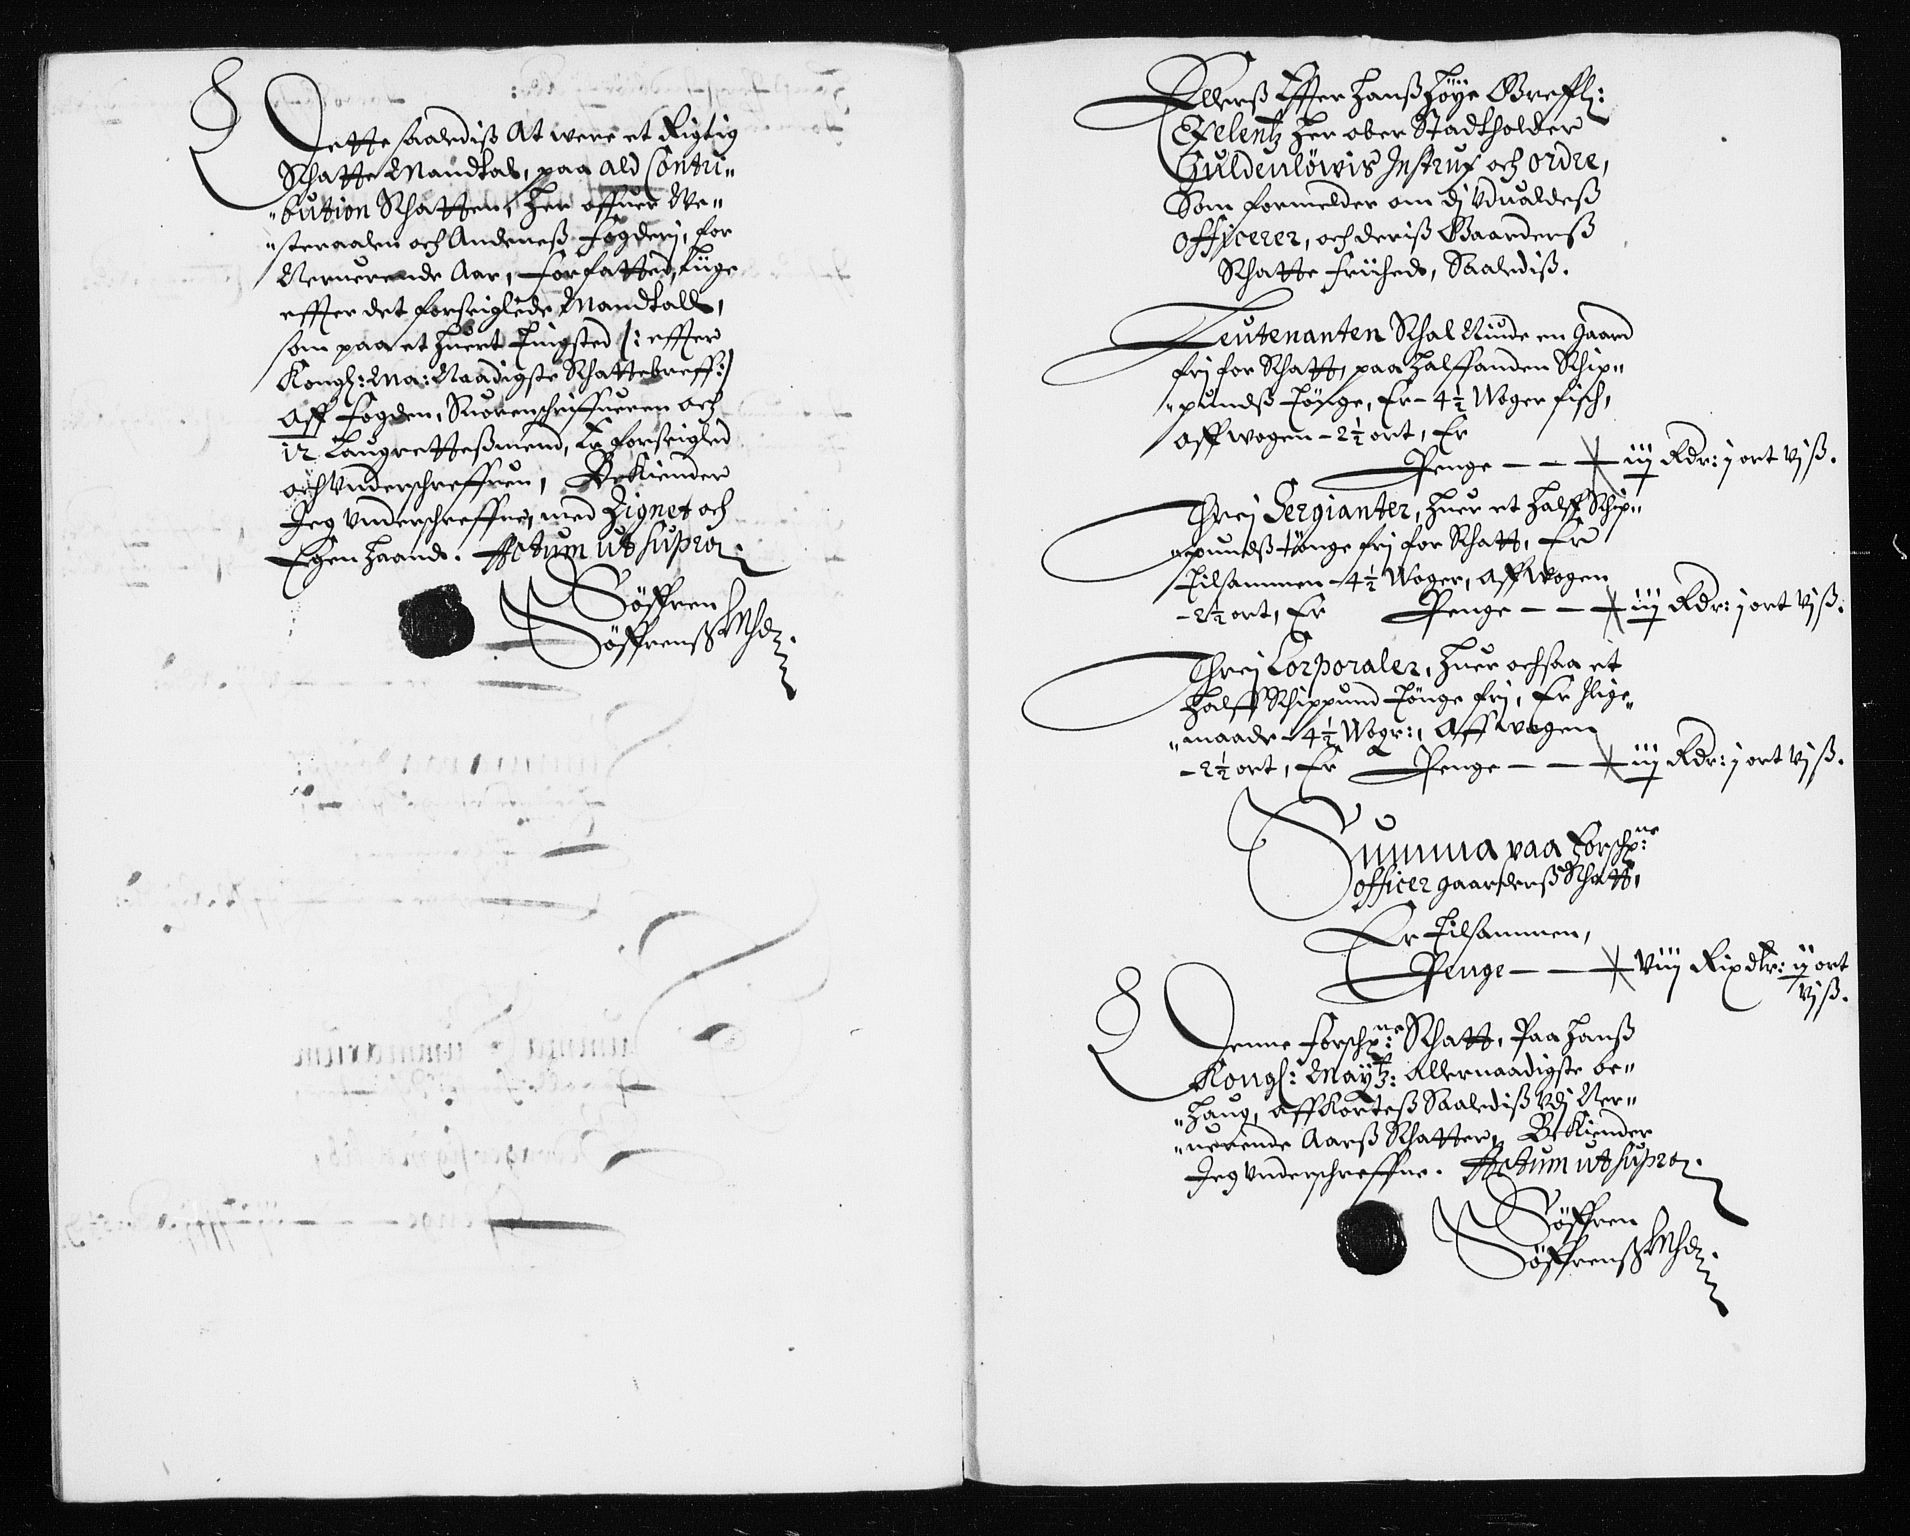 Dette saalediß At were et Rigtig
Schatte Mandtal, paa ald Contri-
-bution Schatten, her offuer We-
-steraalen och Andeneß fogderj, for
Nerverende Aar, forfatted, Liige
effter det forseiglede Mandtall,
som paa et huert Tingsted /: effter
Kongl: Ma: Naadigste Schattebreff :/
Aff Fogden, Suorenschriffueren och
12 Laugretteßmend, Er forseigled
och Underschreffuen, Bekiender
Jeg Underschreffne, med Zignet och
Egen Haand. Actum ut supra.
Söffren
Söffrenß
Ellerß Effter Hanß Höye Greffl:
Exelentz Her ober Stadtholder
Guldenlöwis Instrux och Ordre,
Som formelder om dj Udualdeß
Officerer, och deriß Gaarderß
Schatte friihed, Saalediß.
Leutenanten Schal Niude en gaard
frj for Schatt, paa halffanden Schip-
-pundß Tönge, Er - 4½ Woger fisch,
Aff wogen - 2½ ort, Er
Penge - - iij Rdr: j ort vj ß.
Threj Sergianter, huer et halff Schip-
-pundß tönge frj for Schatt, Er
Tilsammen - 4½ Woger, Aff Wogen
- 2½ ort, Er Penge - - iij Rdr: j ort vj ß.
Threj Corporaler, huer ochsaa et
halff Schippund Tönge frj, Er lige-
-maade - 4½ Wogr:, Aff wogen
- 2½ ort, Er Penge - - iij Rdr: j ort vj ß.
Summa paa Forschp:ne
officer gaarderß Schatt,
Er Tilsammen,
Penge - - viij Rixdlr: ij ort
vj ß.
Denne Forschp:ne Schatt, Paa Hanß
Kongl: Maytz: Allernaadigste be-
-haug, Affkorteß Saalediß Udj Ner-
-uerende Aarß Schatter, Bekiender
Jeg Underschreffne. Actum ut supra.
Söffren
Söffrenß